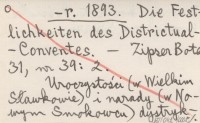 -r. 1893. Die Fest-
lichkeiten des Districtual-
-Conventes. – Zipser Bote
31, nr 39: 2.
Uroczystości (w Wielkim
Sławkowie) i narady (w No-
wym Smokowcu) dystryk-